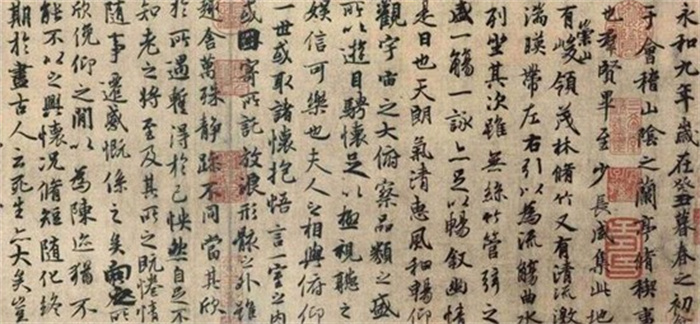 永和九年歲在癸丑暮春之初
于會稽山陰之蘭亭脩稧事
也群賢畢至少長咸集此地
有崇山峻領茂林脩竹又有清流激
湍暎帶左右引以為流觴曲水
列坐其次雖無絲竹管弦之
盛一觴一詠亦足以暢叙幽情
是日也天朗氣清惠風和暢仰
觀宇宙之大俯察品類之盛
所以遊目騁懷足以極視聽之
娛信可樂也夫人之相與俯仰
一世或取諸懷抱悟言一室之內
或因寄所託放浪形骸之外雖
趣舍萬殊靜躁不同當其欣
於所遇蹔得於己怏然自足不
知老之將至及其所之既惓情
隨事遷感慨係之矣向之所
欣俛仰之閒以為陳迹猶不
能不以之興懷況脩短隨化終
期於盡古人云死生亦大矣豈